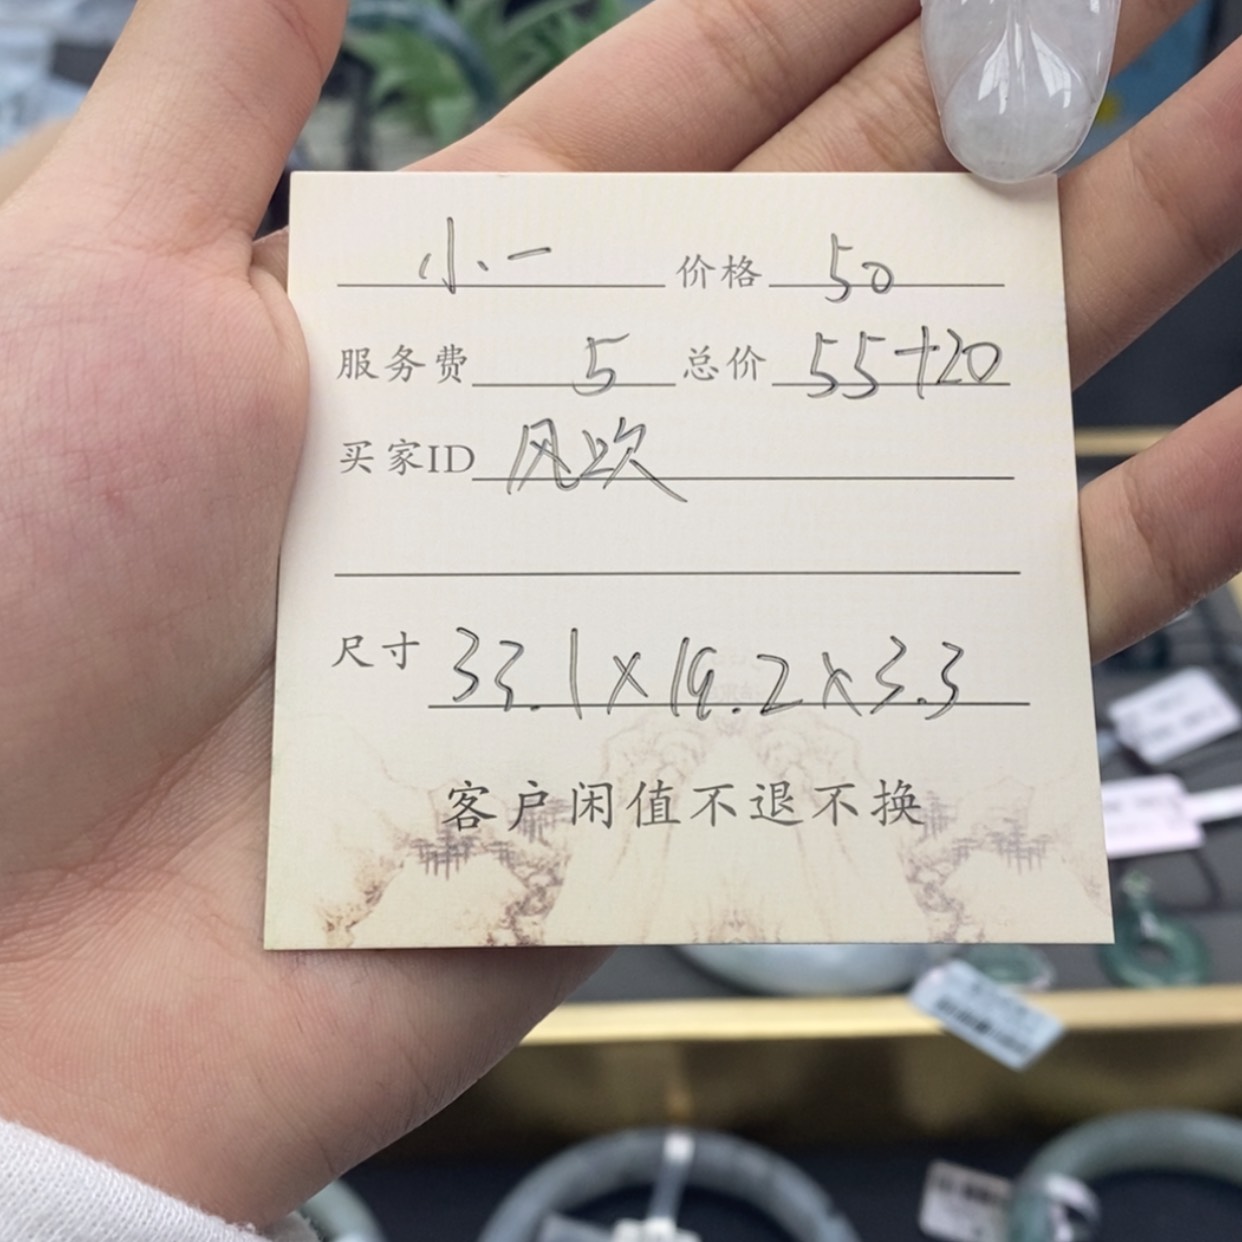 小一 价格 50
服务费 5 总价 55+20
买家ID 风吹
尺寸 33.1×19.2×3.3
客户闲值不退不换